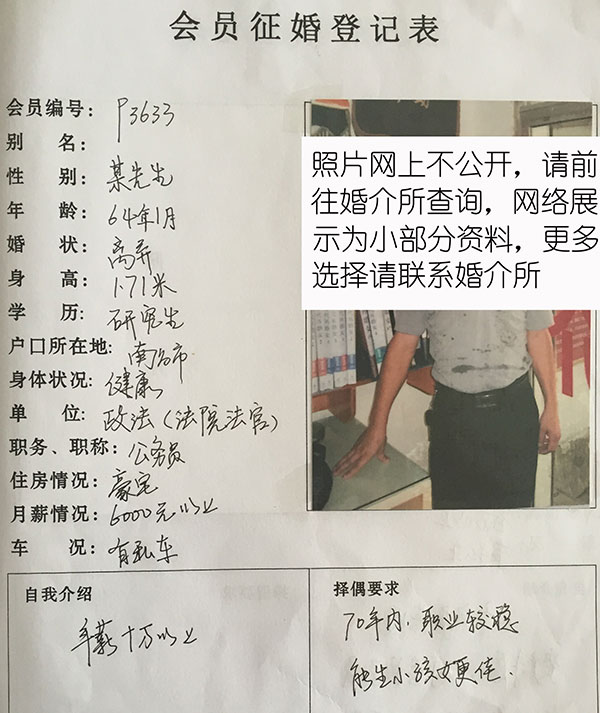 会员征婚登记表
会员编号：P3633
别 名：
性 别：某先生
年 龄：64年1月
婚 状：离异
身 高：1.71米
学 历：研究生
户口所在地：南宁市
身体状况：健康
单 位：政法（法院法官）
职务、职称：公务员
住房情况：豪宅
月薪情况：6000元以上
车 况：有私车
照片网上不公开，请前
往婚介所查询，网络展
示为小部分资料，更多
选择请联系婚介所
自我介绍
年薪十万以上
择偶要求
70年内，职业较稳
能生小孩更佳．